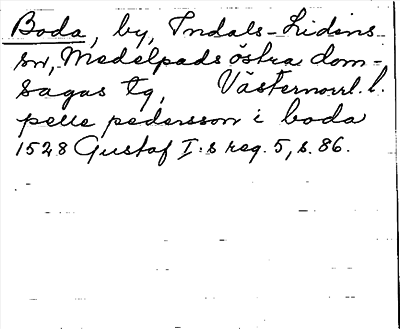 Boda, by, Indals-Lidens
sn, Medelpads östra dom-
sagas tg, Västernorrl. l.
pelle pedersson i boda
1528 Gustaf I:s reg. 5, s. 86.